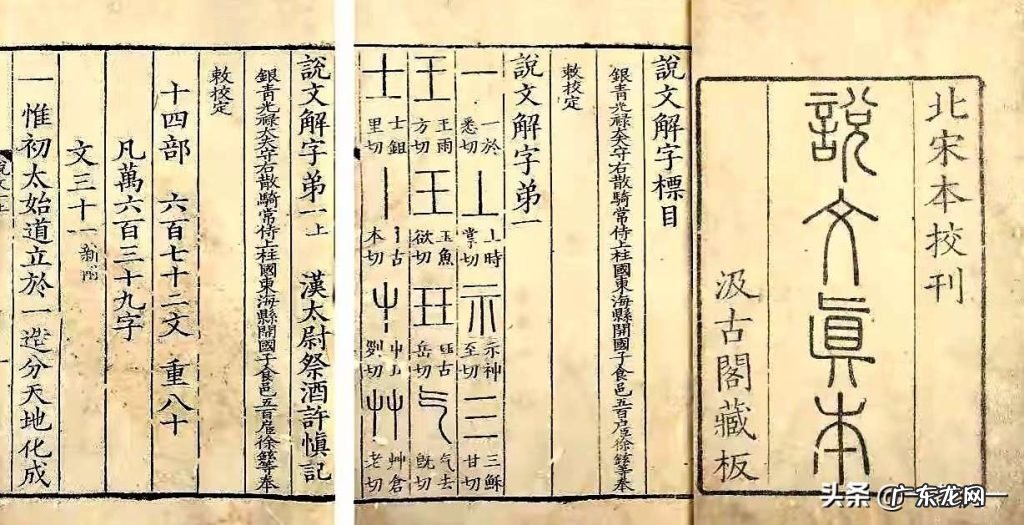 北宋本挍刊
說文眞本
汲古閣藏板
說文解字標目
銀青光祿大夫守右散騎常侍上柱國東海縣開國子食邑五百戶徐鉉等奉
敕校定
說文解字弟一
一 一於悉切 丄 丄時掌切 示 示神至切 三 三穌甘切
王 王雨方切 王 玉魚欲切 玨 玨古岳切 气 气去旣切
士 士鉏里切 丨 丨古本切 屮 屮丑列切 艸 艸倉老切
說文解字弟一上 漢太尉祭酒許慎記
銀青光祿大夫守右散騎常侍上柱國東海縣開國子食邑五百戶徐鉉等奉
敕校定
十四部 六百七十二文 重八十
凡萬六百三十九字
文三十一新附
一 惟初太始道立於一造分天地化成
头条 @广东龙网一